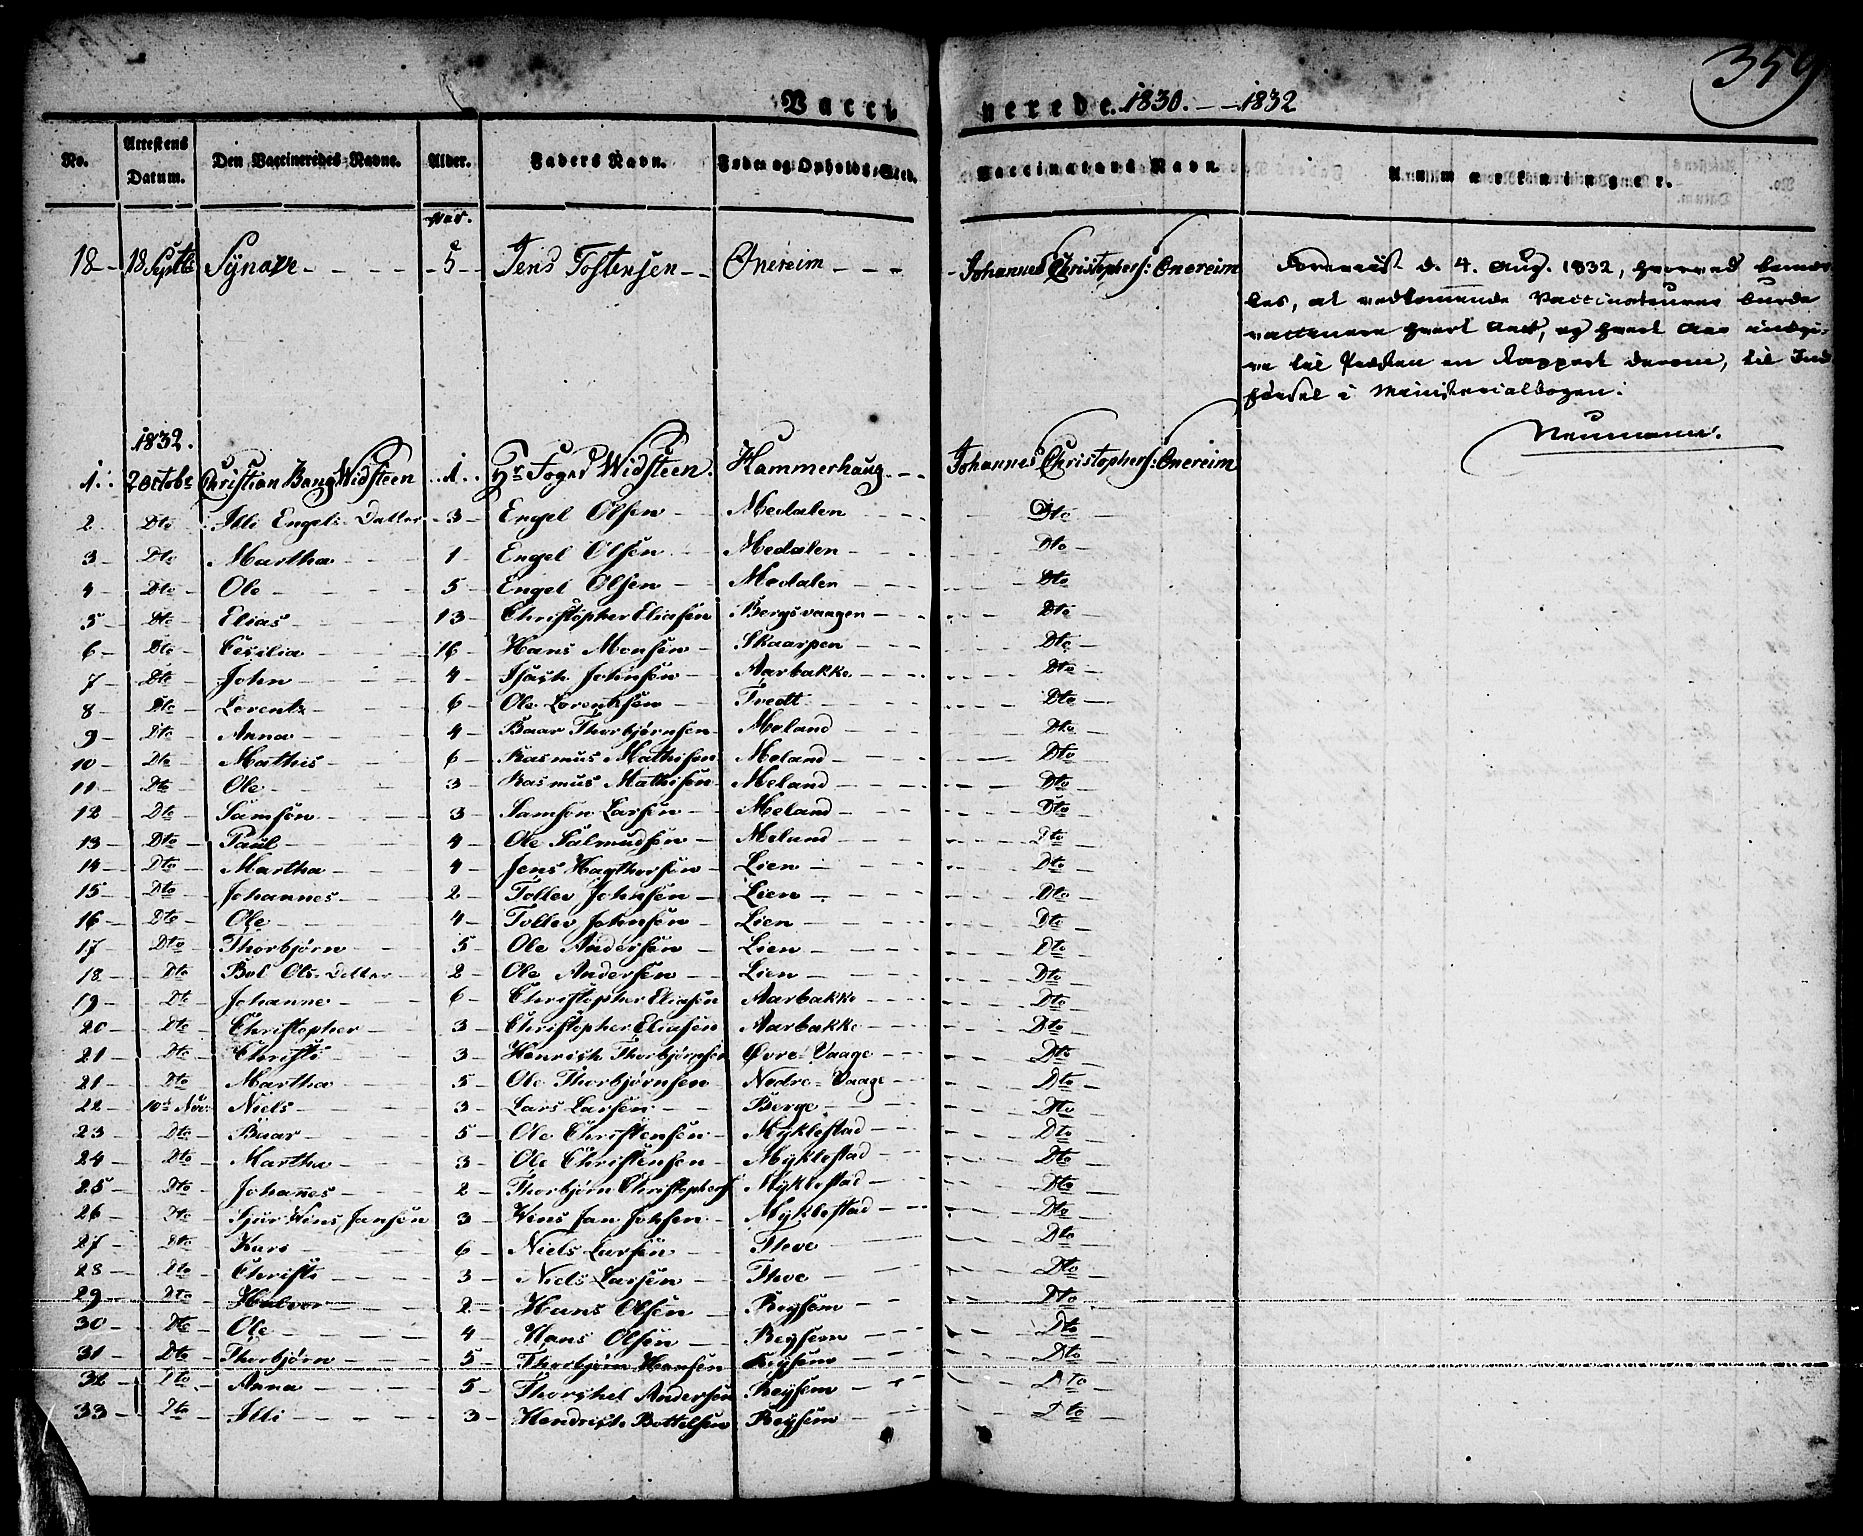 359
Vaccinerede. 1830. — 1832
No. Attestens Datum. Den Vaccineredes Navne. Alder. Faders Navn. Føde- og Opholds-Sted. Vaccinateurs Navn. Anmærkninger.
Aar.
18 - 18 Septbr Synave - - - 5 - Jens Tostensen - - Onereim - - - Johannes Christophers: Onereim
Foreviist d. 4. Aug. 1832, hvorved bemær-
kes, at vedkommende Vaccinateurer burde
vaccinere hvert Aar, og hvert Aar indgi-
ve til Præsten en Rapport derom, til Ind-
førsel i Ministerialbogen.
Neumann.
1832.
1. 2 Octobr Christian Bang Widsteen 1. Hr Foged Widsteen. Hammerhaug - - Johannes Christophers: Onereim
2 Dto Illi Engels Datter - 3 - Engel Olsen - Medalen - - Dto
3 - Dto Martha - 1 - Engel Olsen - Medalen - - Dto
4 - Dto Ole - 5 - Engel Olsen - Medalen - - Dto
5 - Dto Elias - 13 - Christopher Eliasen Bergsvaagen - - Dto
6 - Dto Cesilia - 16 - Hans Monsen - Skaarpen - - Dto
7 - Dto John - 4 - Isach Johnsen - Aarbakke - - Dto
8 - Dto Lorents - 6 - Ole Lorentsen - Tvedt - - Dto
9 - Dto Anna - 4 - Baar Thorbjørnsen - Meland - - Dto
10 - Dto Mathis - 6 - Rasmus Mathisen Meland - - Dto
11 - Dto Ole - 3 - Rasmus Mathisen Meland - - Dto
12 - Dto Samson - 3 - Samson Larsen - Meland - - Dto
13 - Dto Paul - 4 - Ole Salmundsen - Meland - - Dto
14 - Dto Martha - 4 - Jens Hagthorsen - Lien - - Dto
15 - Dto Johannes - 2 - Tollev Johnsen - Lien - - Dto
16 - Dto Ole - 4 - Tollev Johnsen - Lien - - Dto
17 - Dto Thorbjørn - 5 - Ole Andersen - Lien - - Dto
18 - Dto Bol Ols. Datter - 2 - Ole Andersen - Lien - - Dto
19 - Dto Johanne - 6 - Christopher Eliasen Aarbakke - - Dto
20 - Dto Christopher - 3 - Christopher Eliasen Aarbakke - - Dto
21 - Dto Christi - 3 - Henrich Thorbjørnsen Øvre-Vaage - - Dto
21 - Dto Martha - 5 - Ole Thorbjørnsen - Nedre-Vaage - - Dto
22 - 10d Nov: Niels - 3 - Lars Larsen - Berge - - Dto
23 - Dto Baar - 5 - Ole Christensen - Myklestad - - Dto
24 - Dto Martha - 3 - Ole Christensen - Myklestad - - Dto
25 - Dto Johannes - 2 - Thorbjørn Christophers Myklestad - - Dto
26 - Dto Sjur Wins Jansen 3 - Wins Jan Johsen - Myklestad - - Dto
27 - Dto Kari - 6 - Niels Larsen - Thoe - Dto
28 - Dto Christi - 3 - Niels Larsen - Thoe - Dto
29 - Dto Halvor - 2 - Hans Olsen - Reysem - Dto
30 - Dto Ole - 4 - Hans Olsen - Reysem - Dto
31 - Dto Thorbjørn - 5 - Thorbjørn Hansen Reysem - Dto
32 - Dto Anna - 5 - Thorchel Andersen Reysem - Dto
33 - Dto Illi - 3 - Hendrich Bottelsen Reysem - Dto